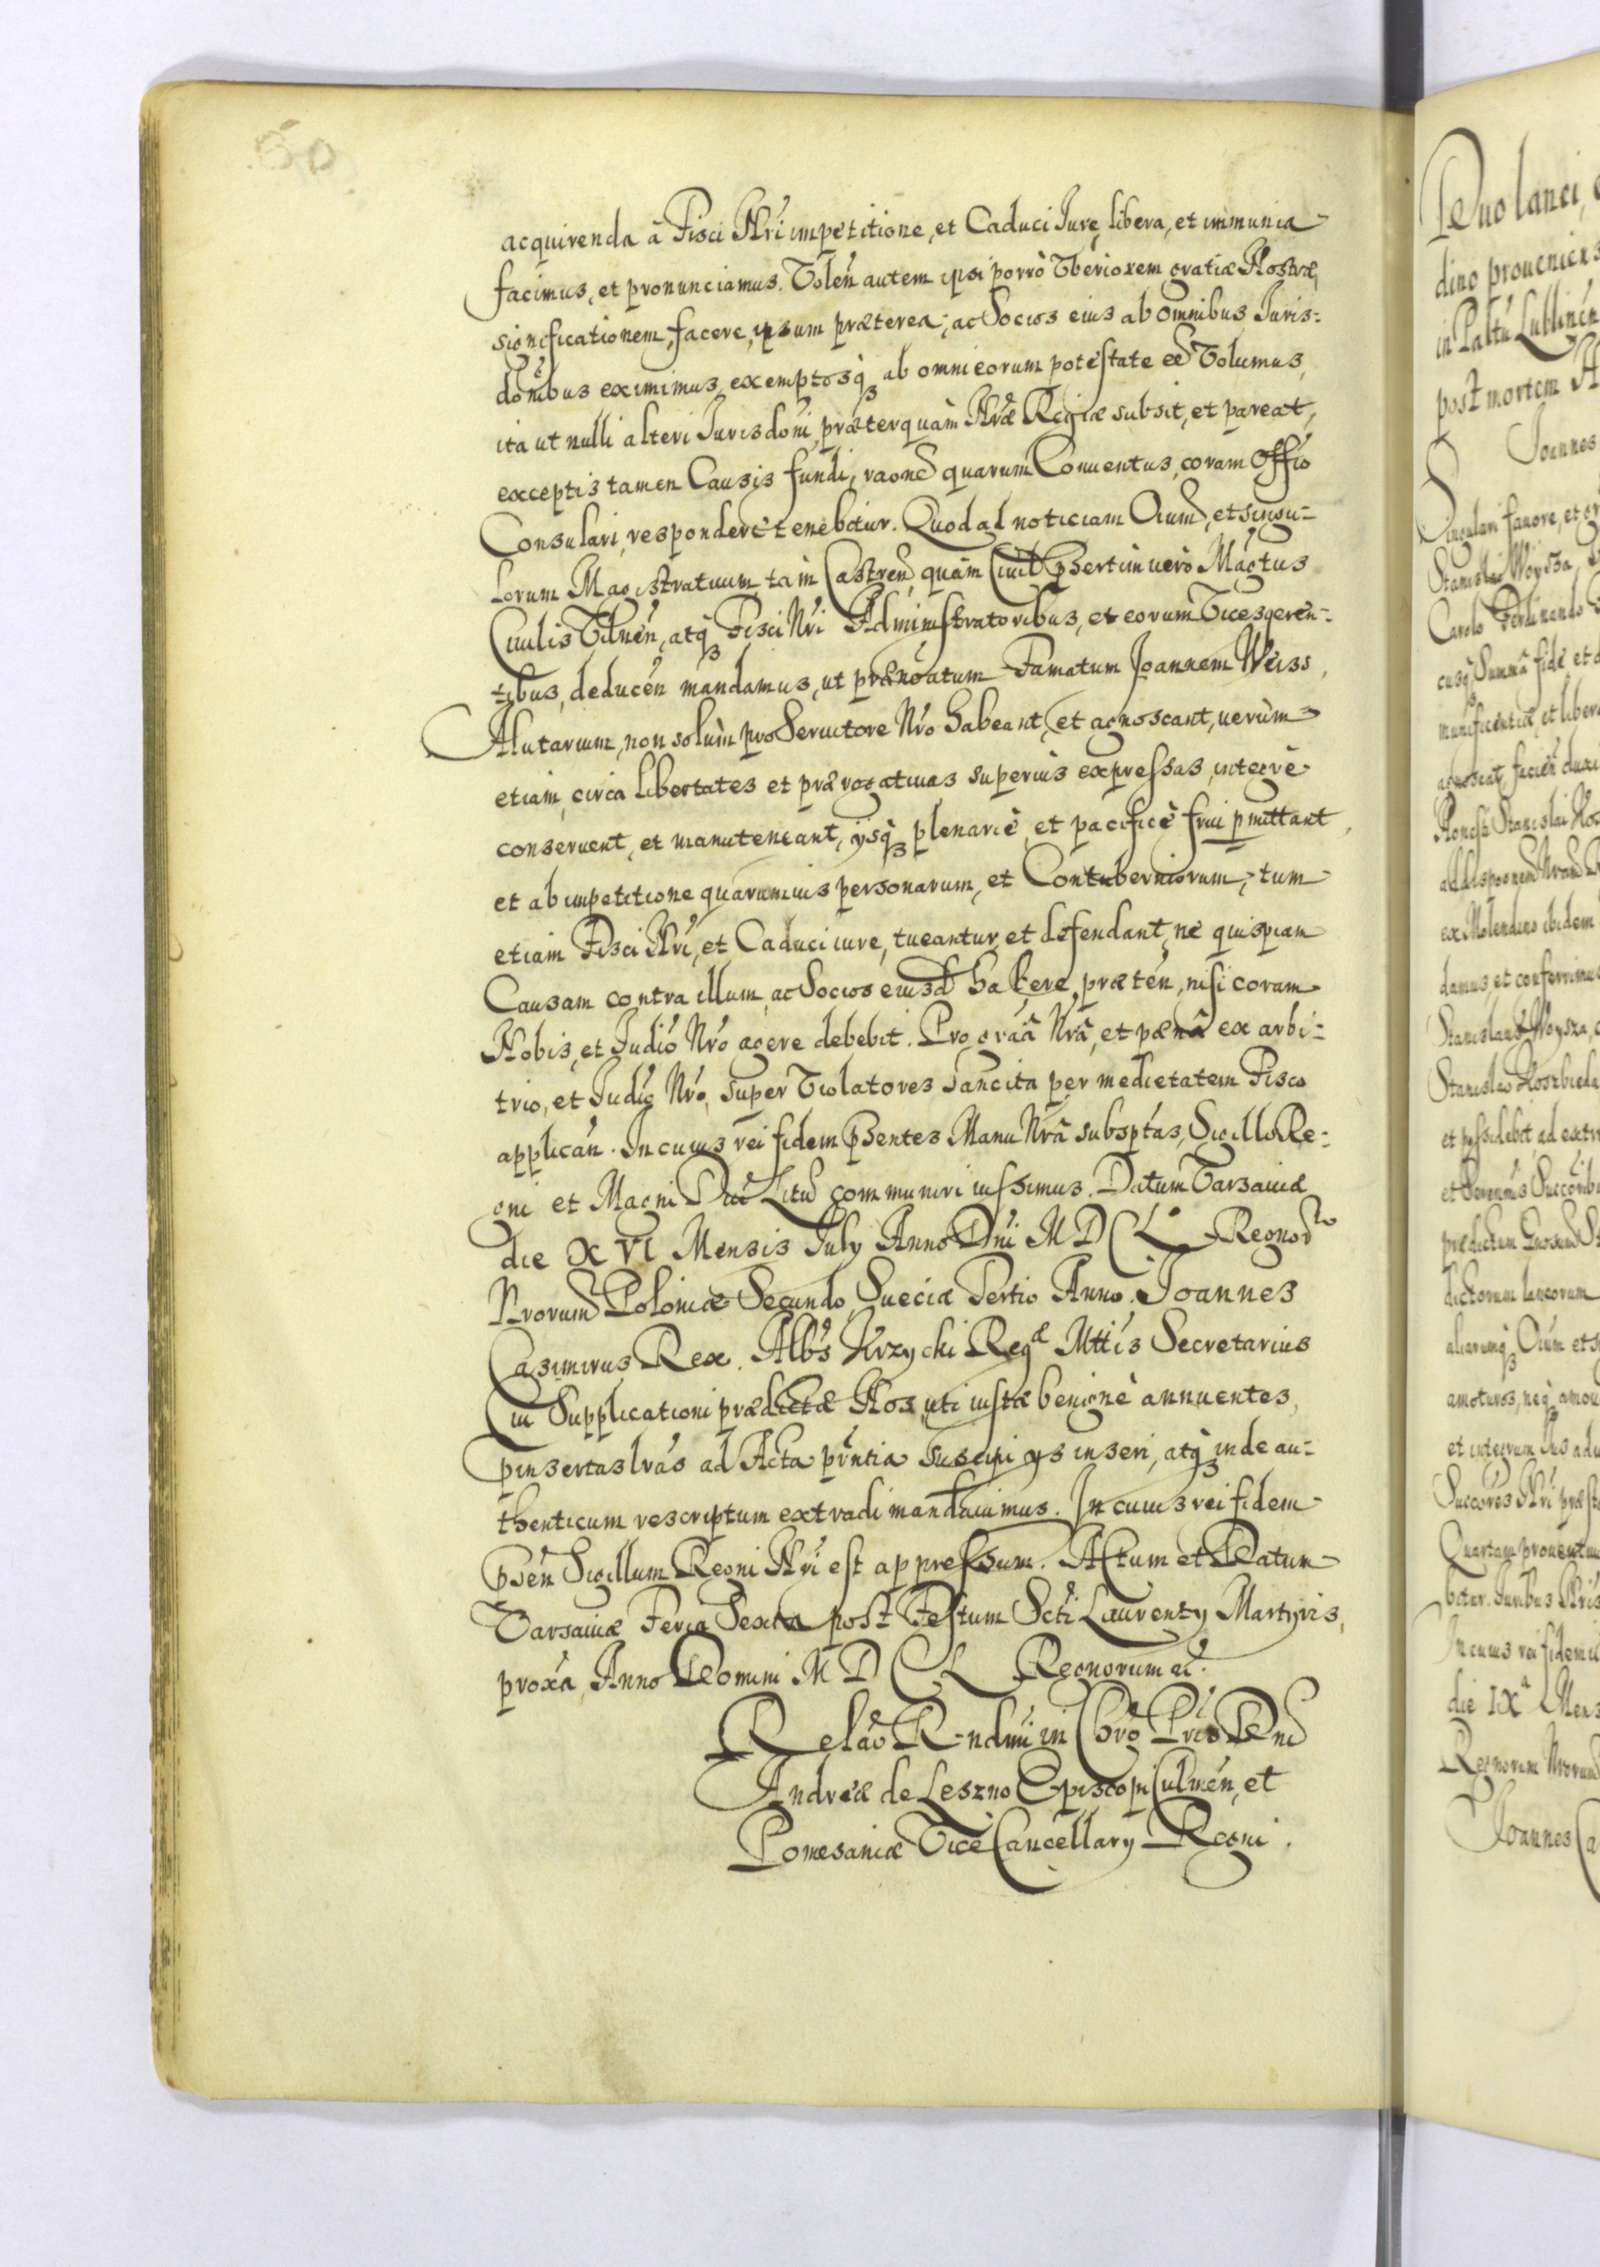 50
acquirenda à Fisci Nri impetitione, et Caduci Jure, libera, et immunia
facimus, et pronunciamus. Volen autem ipsi porrò Vberiorem gratiæ Nostræ,
significationem, facere, ipsum præterea, ac Socios eius ab omnibus Juris=
donibus eximimus, exemptosq3 ab omni eorum potestate ee Volumus,
ita ut nulli alteri Jurisdoni, præterquàm Nræ Regiæ subsit, et pareat,
exceptis tamen Causis fundi, raone quarum Conuentus, coram Offio
Consulari, respondere tenebitur. Quod ad noticiam Oium, et singu=
lorum Magistratuum, tàm Castren, quàm Ciuil psertim uerò Magtus
Ciuilis Vilnen, atq3 Fisci Nri Administratoribus, et eorum Vicesgeren=
tibus, deducen mandamus, ut prænoatum Famatum Joannem Weiss,
Alutarium, non solùm pro Seruitore Nro habeant, et agnoscant, uerùm
etiam, circa libertates et prærogatiuas superius expressas, integrè
conseruent, et manuteneant, ysq3 plenariè, et pacificè frui pmittant,
et ab impetitione quarumuis personarum, et Contuberniorum, tum
etiam Fisci Nri, et Caduci iure, tueantur, et defendant, ne quispiam
Causam contra illum, ac Socios eiusd habere, præten, nisi coram
Nobis, et Judio Nro agere debebit. Pro graa Nra, et pæna ex arbi=
trio, et Judio Nro, super Violatores sancita per medietatem Fisco
applican. In cuius rei fidem psentes Manu Nra subsptas, Sigillo Re=
gni et Magni Duc Litu communiri iussimus. Datum Varsauiæ
die XVI Mensis July Anno Dni MDCLo Regnor
Nrorum Poloniæ Secundo, Sueciæ Tertio Anno. Joannes
Casimirus Rex. Albs Krzycki Regæ Mttis Secretarius
Cui Supplicationi prædictæ Nos, uti iustæ benignè annuentes,
pinsertas lras ad Acta prntia suscipi ys inseri, atq3 inde au=
thenticum rescriptum extradi mandauimus. In cuius rei fidem
psen Sigillum Regni Nri est appressum. Actum et Datum
Varsauiæ Feria Sexta post Festum Scti Laurenty Martyris,
proxa, Anno Domini MDCL Regnorum et.
Relao R-ndmi in Chro Pris Dni
Andreæ de Leszno Episcopi Culmen, et
Pomesaniæ Vice Cancellary Regni.
Duo lanci,
dino proueniens
in Paltu Lublinen
post mortem
Joannes
Singulari fauore, et
Stanislai Woysza
Carolo Ferdinando
cusq3 Summa fide, et
munificentiæ, et
ex Molendino ibidem
damus, et conferrimus
Stanislaus Woysza,
et possidebit, ad
dictorum laneorum
aliarumq3 Oium et
amoturos, neq3
Quartam prouentuu
In cuius rei fidem
die IXa Mens
Regnorum Nrorum
Joannes Ca